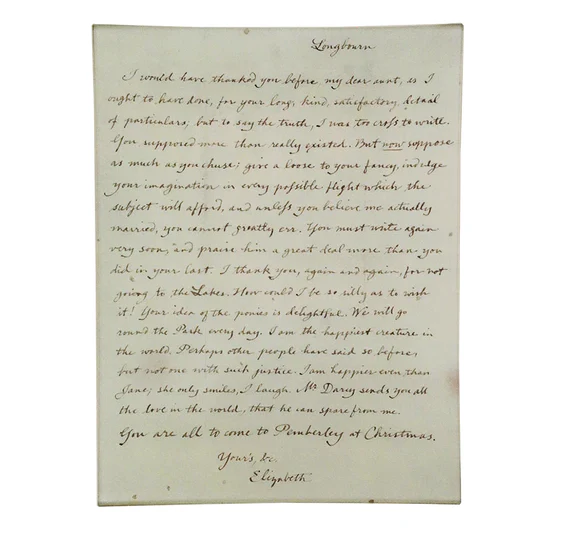 Longbourn
I would have thanked you before my dear aunt, as I
ought to have done, for your long, kind, satisfactory, detail
of particulars; but to say the truth, I was too cross to write.
You supposed more than really existed. But now suppose
as much as you chuse; give a loose to your fancy, indulge
your imagination in every possible flight which the
subject will afford, and unless you believe me actually
married, you cannot greatly err. You must write again
very soon, and praise him a great deal more than you
did in your last. I thank you, again and again, for not
going to the Lakes. How could I be so silly as to wish
it! Your idea of the ponies is delightful. We will go
round the Park every day. I am the happiest creature in
the world. Perhaps other people have said so before,
but not one with such justice. I am happier even than
Jane; she only smiles, I laugh. Mr. Darcy sends you all
the love in the world, that he can spare from me.
You are all to come to Pemberley at Christmas.
Your's, &c.
Elizabeth.